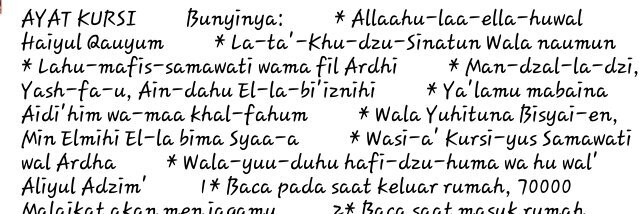 AYAT KURSI Bunyinya: * Allaahu-laa-ella-huwal
Haiyul Qauyum * La-ta'-Khu-dzu-Sinatun Wala naumun
* Lahu-mafis-samawati wama fil Ardhi * Man-dzal-la-dzi,
Yash-fa-u, Ain-dahu El-la-bi'iznihi * Ya'lamu mabaina
Aidi'him wa-maa khal-fahum * Wala Yuhituna Bisyai-en,
Min Elmihi El-la bima Syaa-a * Wasi-a' Kursi-yus Samawati
wal Ardha * Wala-yuu-duhu hafi-dzu-huma wa hu wal'
Aliyul Adzim' 1* Baca pada saat keluar rumah, 70000
Malaikat akan menjagamu 2* Baca saat masuk rumah